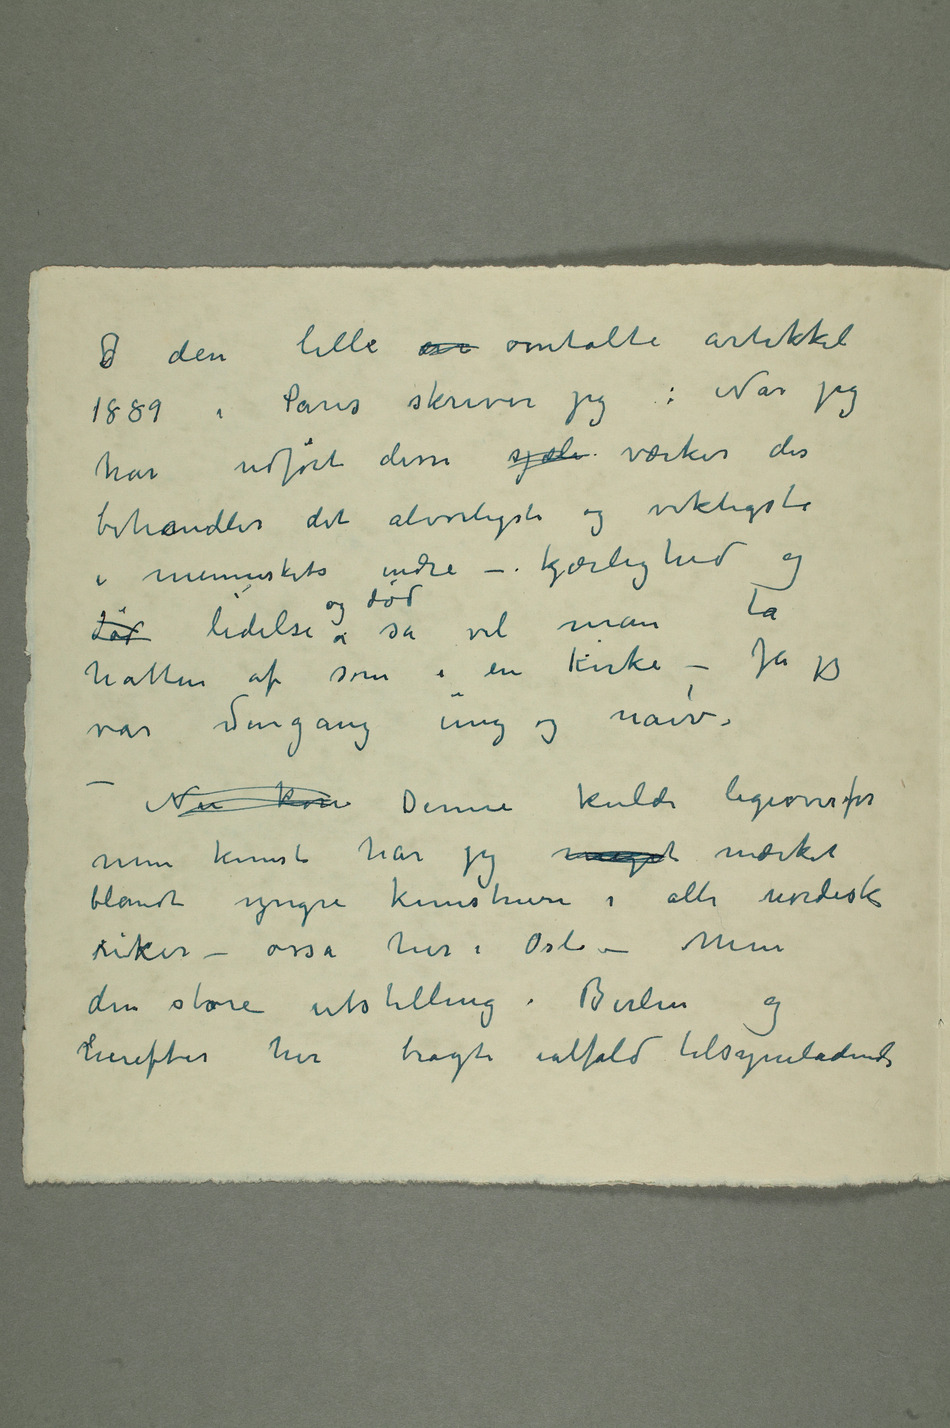 I den lille omtalte artikkel
1889 i Paris skriver jeg : Når jeg
har udført disse sjæle værker der
behandler det alvorligste og viktigste
i menneskets indre – kjærlighed og
død lidelse og død så vil man ta
hatten af som i en Kirke – Ja jeg
var dengang ung og naiv.
– Nu kom Denne kulde ligeoverfor
min kunst har jeg meget mærket
blandt yngre kunstnere i alle nordisk
riker – osså her i Oslo – Men
den store utstilling i Berlin og
herefter her bragte ialfald tilsyneladende